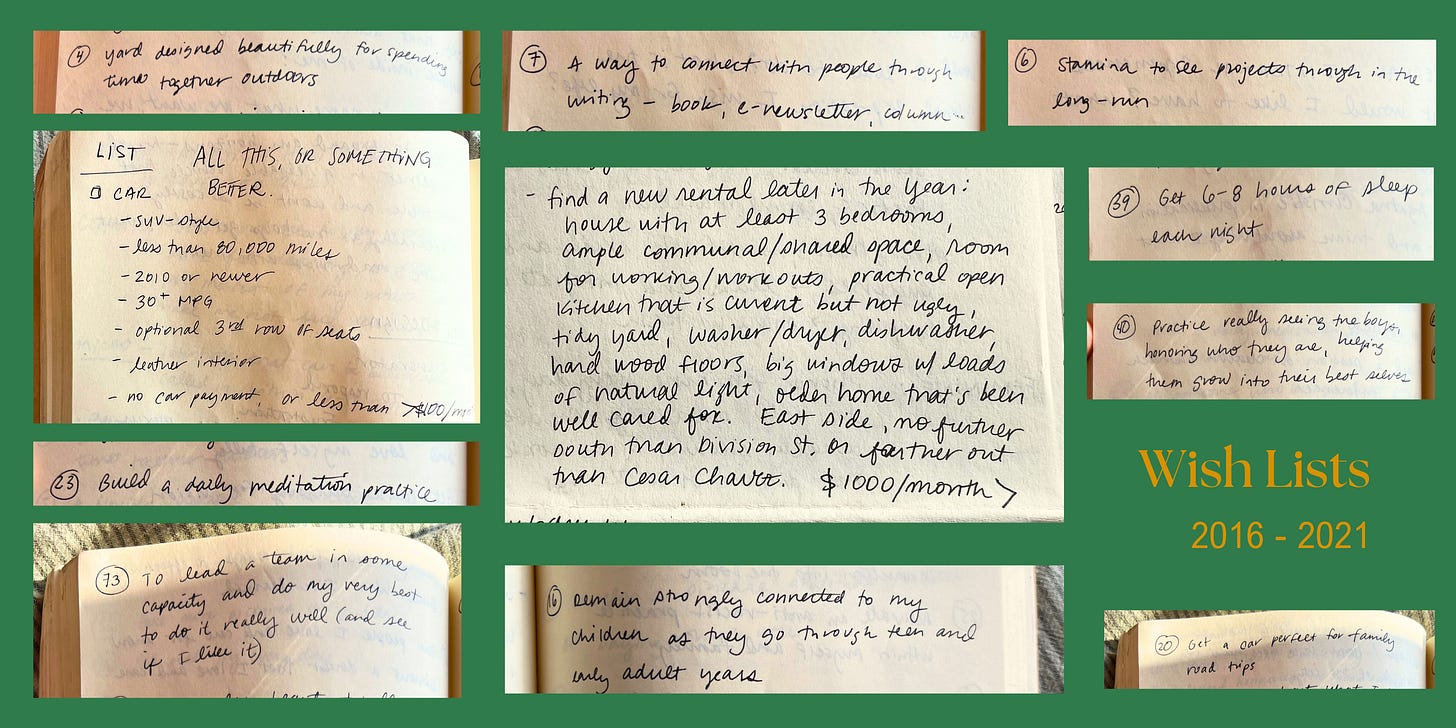 ④ yard designed beautifully for spending
time together outdoors
LIST ALL THIS, OR SOMETHING
BETTER.
CAR
- SUV-style
- less than 80,000 miles
- 2010 or newer
- 30+ MPG
- optional 3rd row of seats
- leather interior
- no car payment, or less than >$100/m
㉓ Build a daily meditation practice
73 To lead a team in some
capacity and do my very best
to do it really well (and see
if I like it)
⑦ A way to connect with people through
writing - book, e-newsletter, column...
- find a new rental later in the year:
house with at least 3 bedrooms,
ample communal/shared space, room
for working/workouts, practical open
kitchen that is current but not ugly,
tidy yard, washer/dryer, dishwasher,
hard wood floors, big windows w/ loads
of natural light, older home that's been
well cared for. East side, no further
south than Division St. or farther out
than Cesar Chavez. $1000/month >
⑯ Remain strongly connected to my
children as they go through teen and
early adult years
⑥ Stamina to see projects through in the
long-run
㊴ Get 6-8 hours of sleep
each night
㊵ Practice really seeing the boys,
honoring who they are, helping
them grow into their best selves
Wish Lists
2016 - 2021
⑳ Get a car perfect for family
road trips